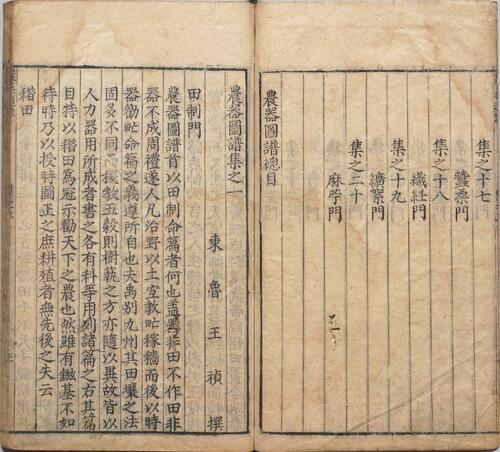 集之十七
蠶桑門
集之十八
織紝門
集之十九
纊絮門
集之二十
麻苧門
農器圖譜總目
農器圖譜集之一
東魯王禎撰
田制門
農器圖譜首以田制命篇者何也蓋器非田不作田非
器不成周禮遂人凡治野以土宜教甿稼穡而後以時
器勸甿命篇之義遵所自也夫禹别九州其田壤之法
固多不同而稷教五穀則樹藝之方亦隨以異故皆以
人力器用所成者書之各有科等用列諸篇之右其篇
目特以耤田為冠示勸天下之農也然雖有鎡基不如
待時乃以授時圖正之庶耕殖者無先後之失云
耤田